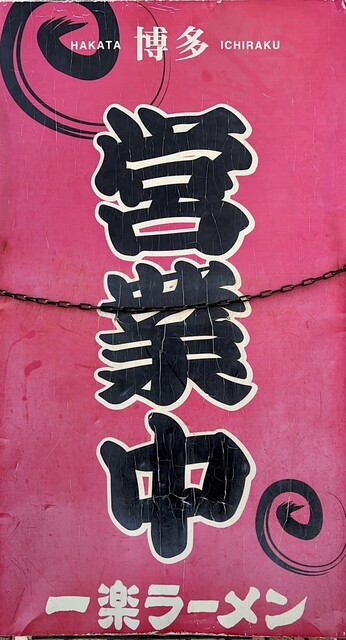 HAKATA 博多 ICHIRAKU
営業中
一楽ラーメン